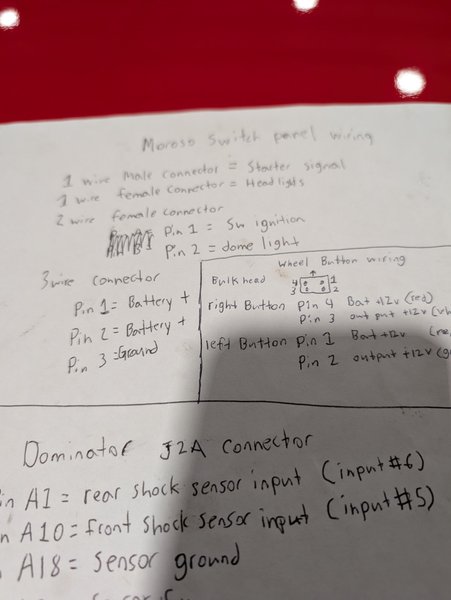 Moroso Switch panel wiring
1 wire Male connector = Starter signal
1 wire female connector = Headlights
2 wire female connector
Pin 1 = Sw ignition
Pin 2 = dome light
3 wire connector
Pin 1 = Battery +
Pin 2 = Battery +
Pin 3 = Ground
Wheel Button wiring
Bulkhead 4 3 1 2
right Button Pin 4 Bat +12v (red)
Pin 3 output +12v
left Button Pin 1 Bat +12v
Pin 2 output +12v
Dominator J2A Connector
A1 = rear shock sensor input (input #6)
A10 = front shock sensor input (input #5)
A18 = Sensor ground